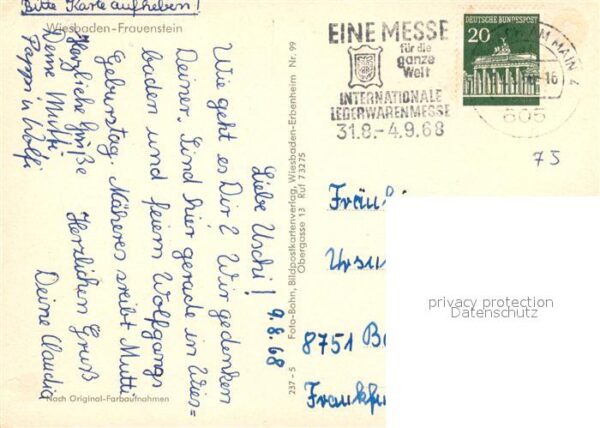 Bitte Karte aufheben!
Wiesbaden-Frauenstein
Liebe Uschi! 9.8.68
Wie geht es Dir? Wir gedenken
Deiner. Sind hier gerade in Wies=
baden und feiern Wolfgangs
Geburtstag Näheres sreibt Mutti
Herzlichen Gruß
Deine Claudia
Herzliche Grüße
Deine Mutti
Pappi u Wolfi
Nach Original-Farbaufnahmen
237 - 5 Foto-Bohn, Bildpostkartenverlag, Wiesbaden-Erbenheim Nr. 99
Obergasse 13 Ruf 73275
EINE MESSE
für die
ganze
Welt
INTERNATIONALE
LEDERWARENMESSE
31.8.-4.9.68
DEUTSCHE BUNDESPOST
20
AM MAIN 4
16
605
75
Fräul
Ursu
8751 Ba
Frankfu
privacy protection
Datenschutz